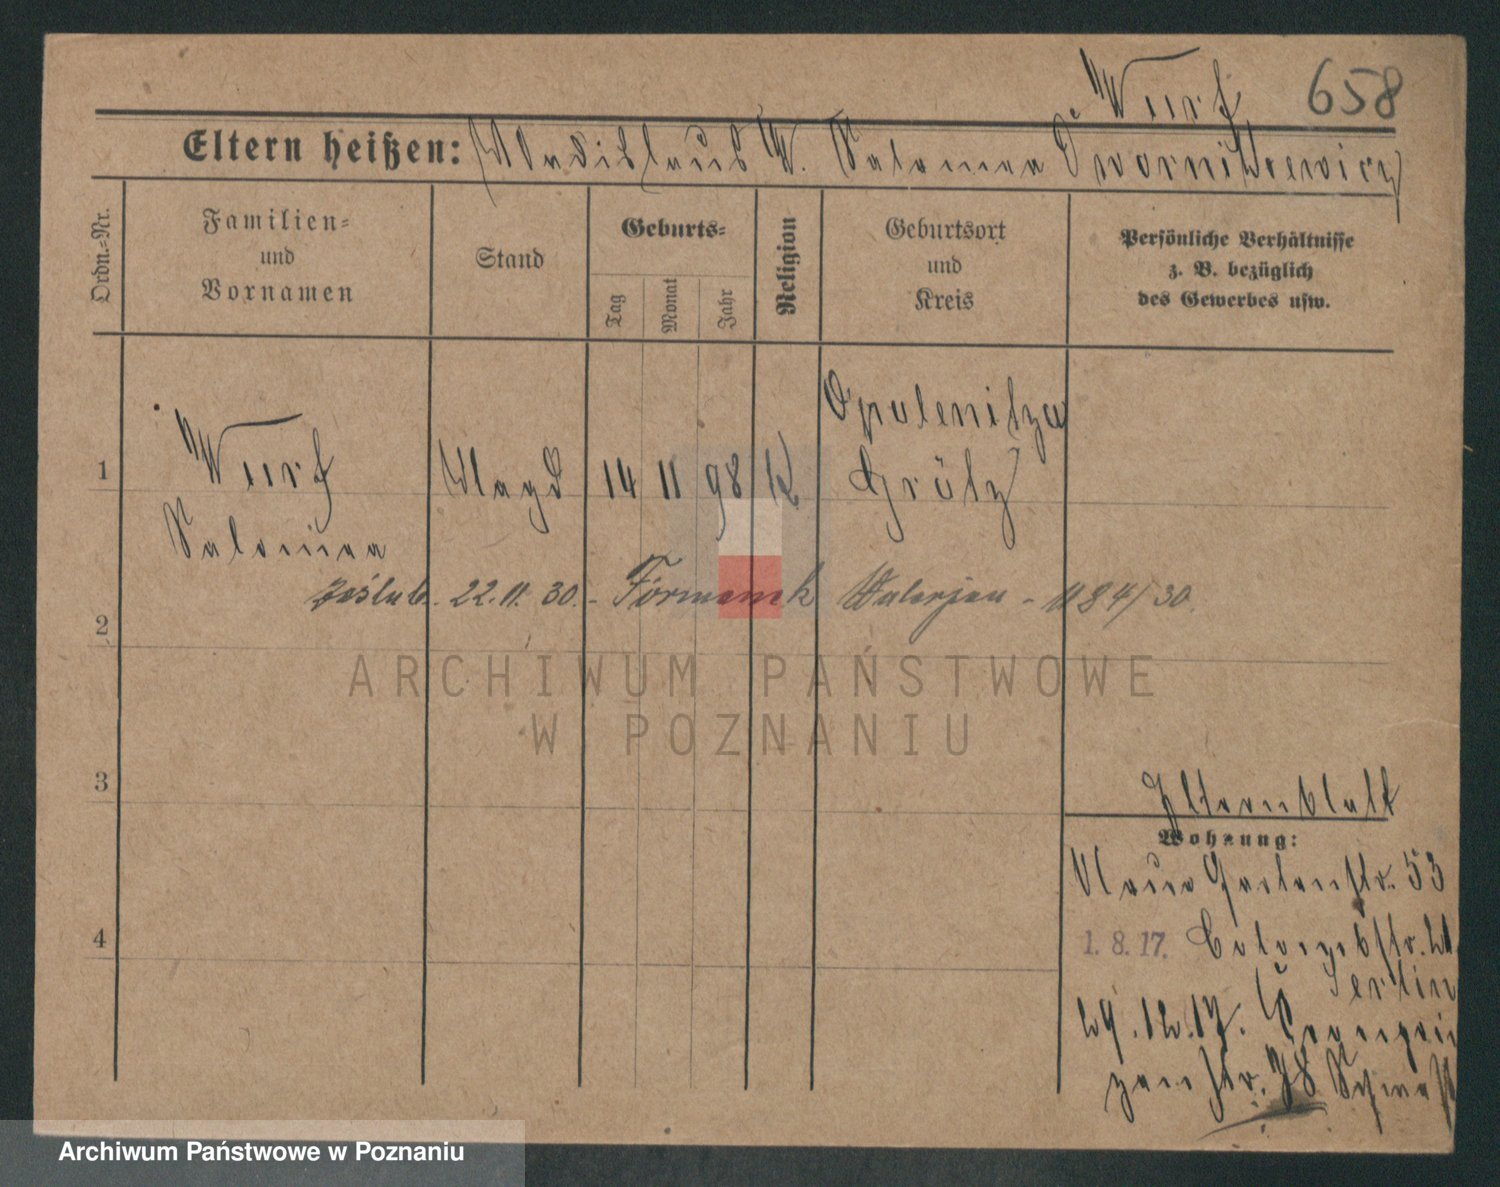 658
Wurf
Eltern heißen: Wladislaus W. Salomea Dwornikiewicz
Ordn.-Nr.
Familien-
und
Vornamen
Stand
Geburts-
Tag
Monat
Jahr
Religion
Geburtsort
und
Kreis
Persönliche Verhältnisse
z. B. bezüglich
des Gewerbes usw.
Opalenitza
1 Wurf Magd 14 11 98 K Grätz
Salomea
poślub. 22.11.30. - Formanek Walerjan - 1184/30.
2
ARCHIWUM PAŃSTWOWE
W POZNANIU
3
Elternblatt
Wohnung:
Neue Gartenstr. 53
4
1. 8. 17. Colombstr.
Berlin
29.12.17. Kronprin
zenstr. 78
Archiwum Państwowe w Poznaniu